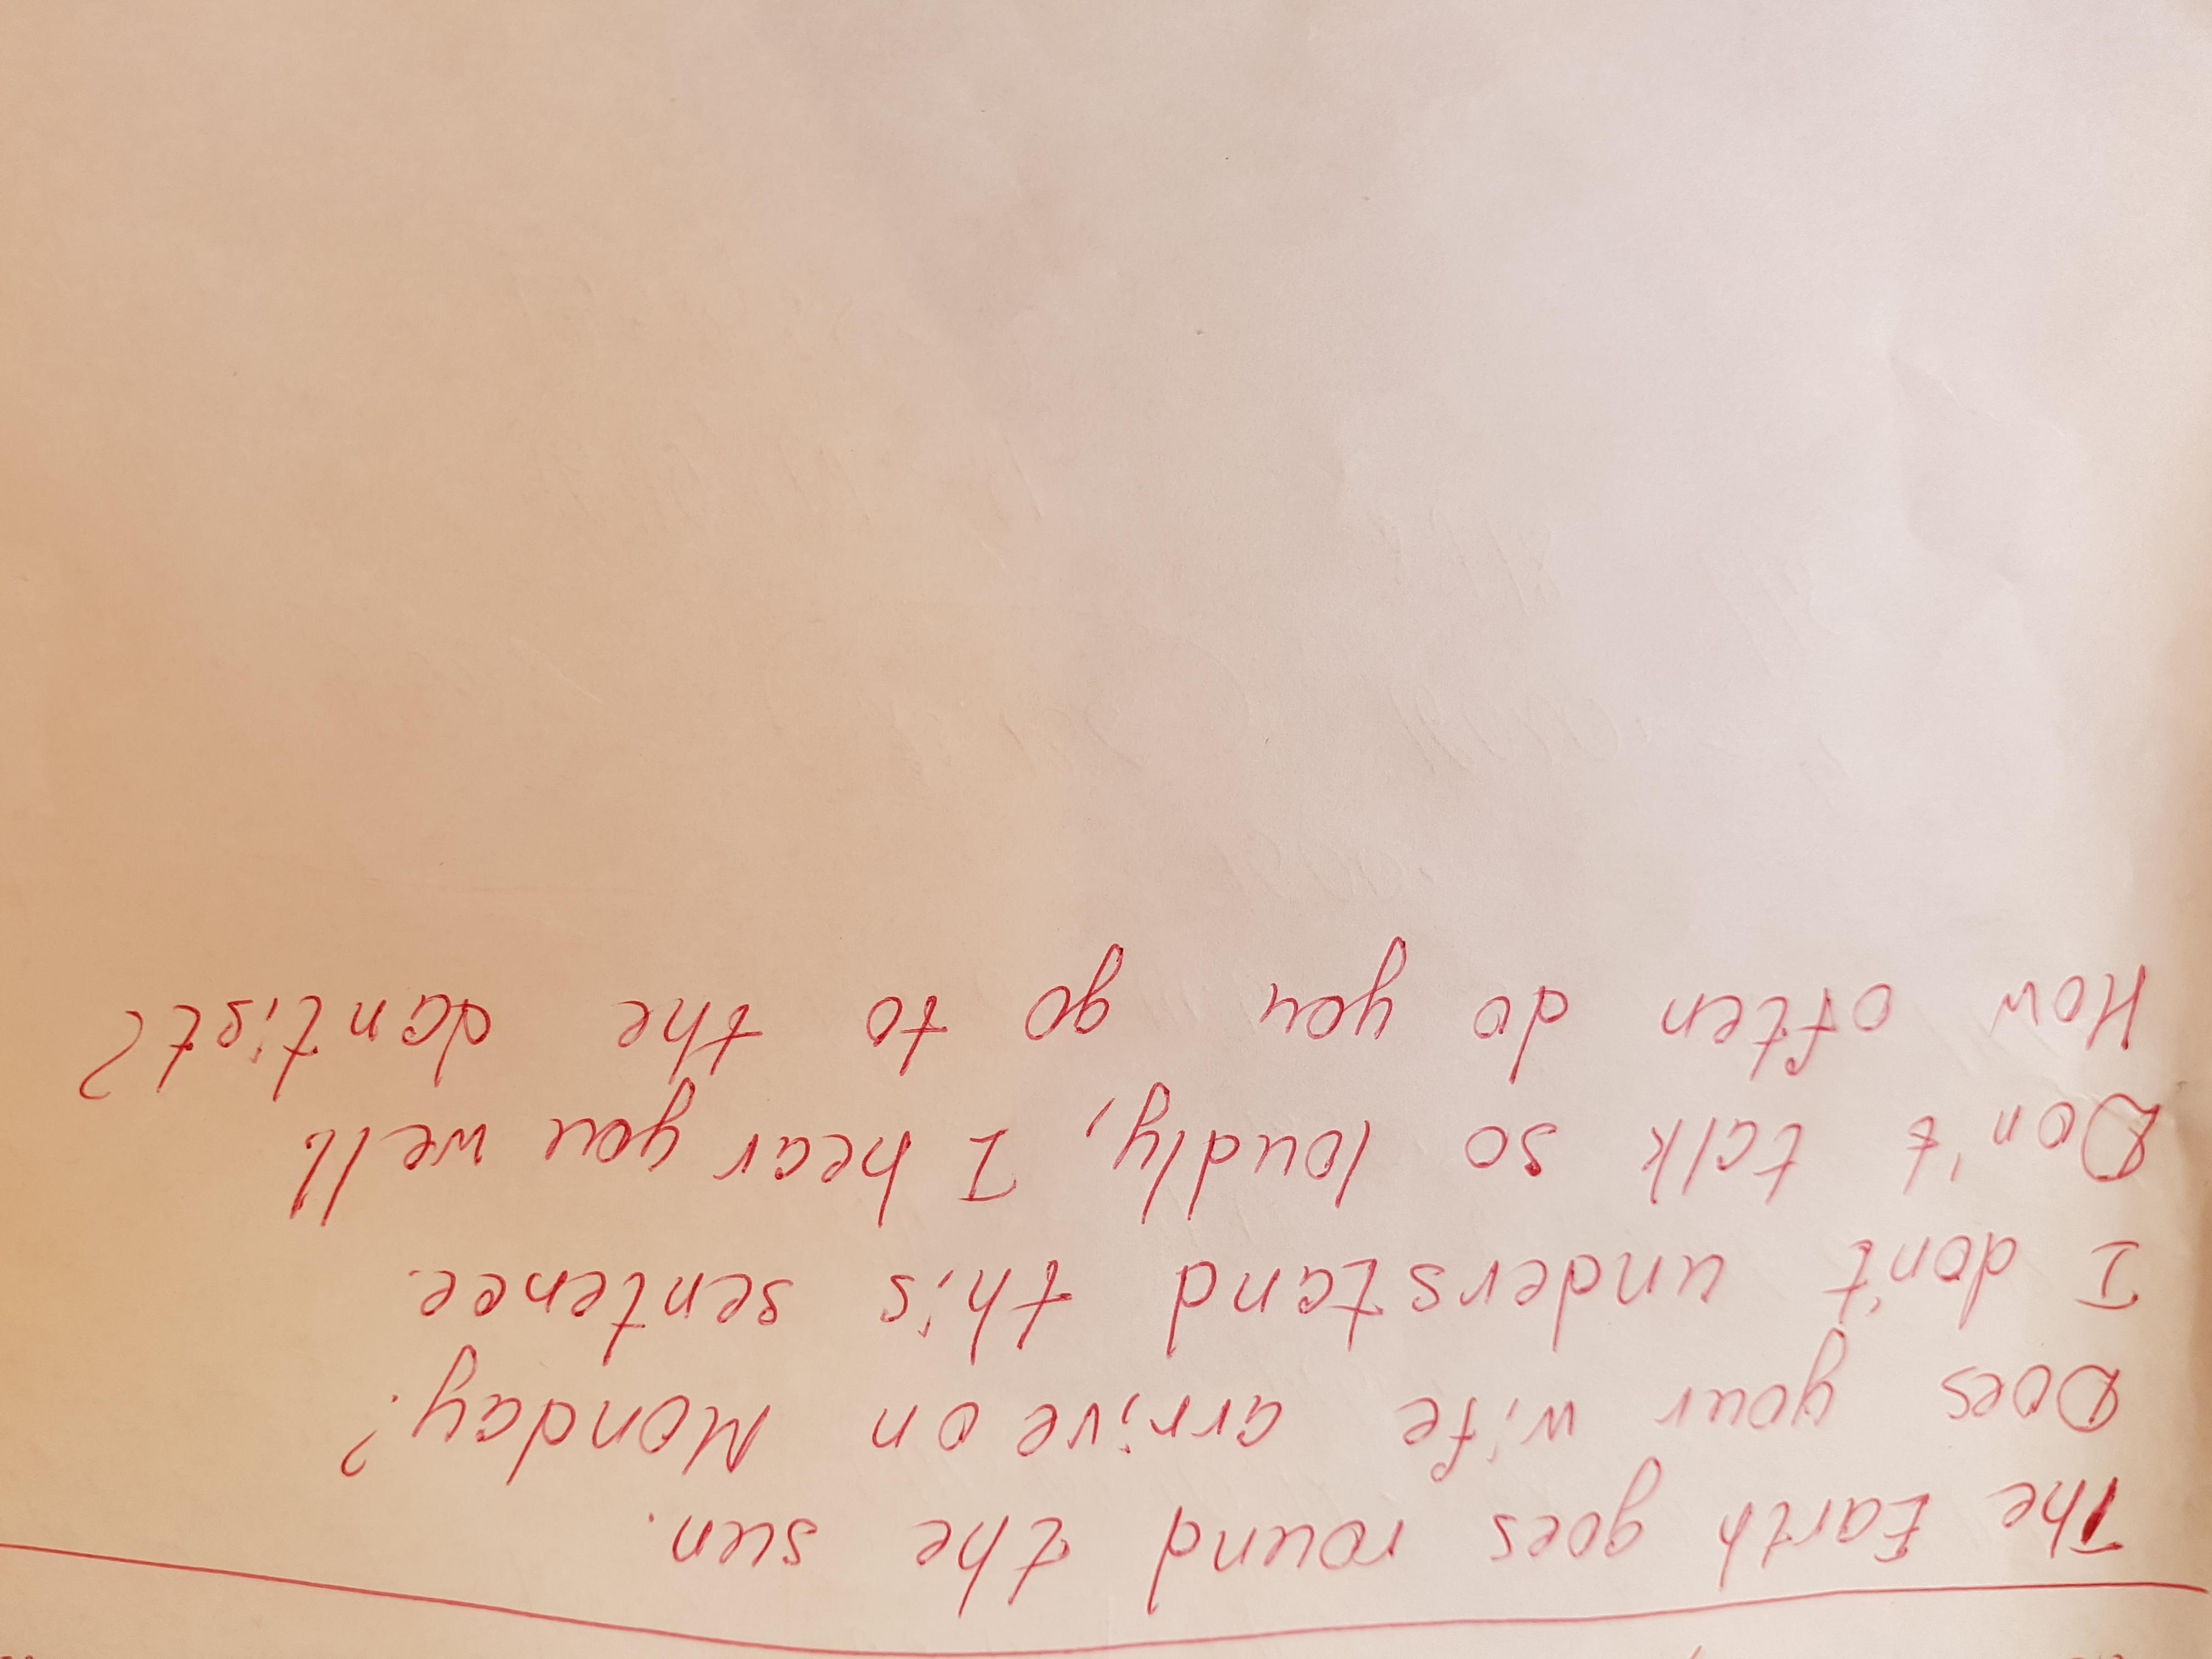 The Earth goes round the sun.
Does your wife arrive on Monday?
I don't understand this sentence.
Don't talk so loudly, I hear you well
How often do you go to the dantist?